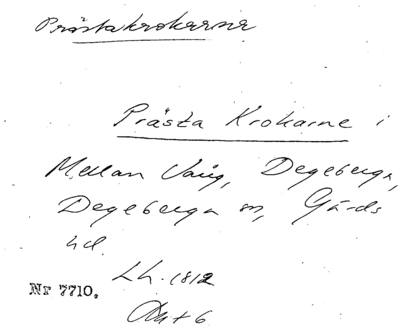 Prästakrokarna
Prästa Krokarne i
Mellan Vång, Degeberga,
Degeberga sn, Gärds
hd.
Lh. 1812
Nr 7710.
Akt 6